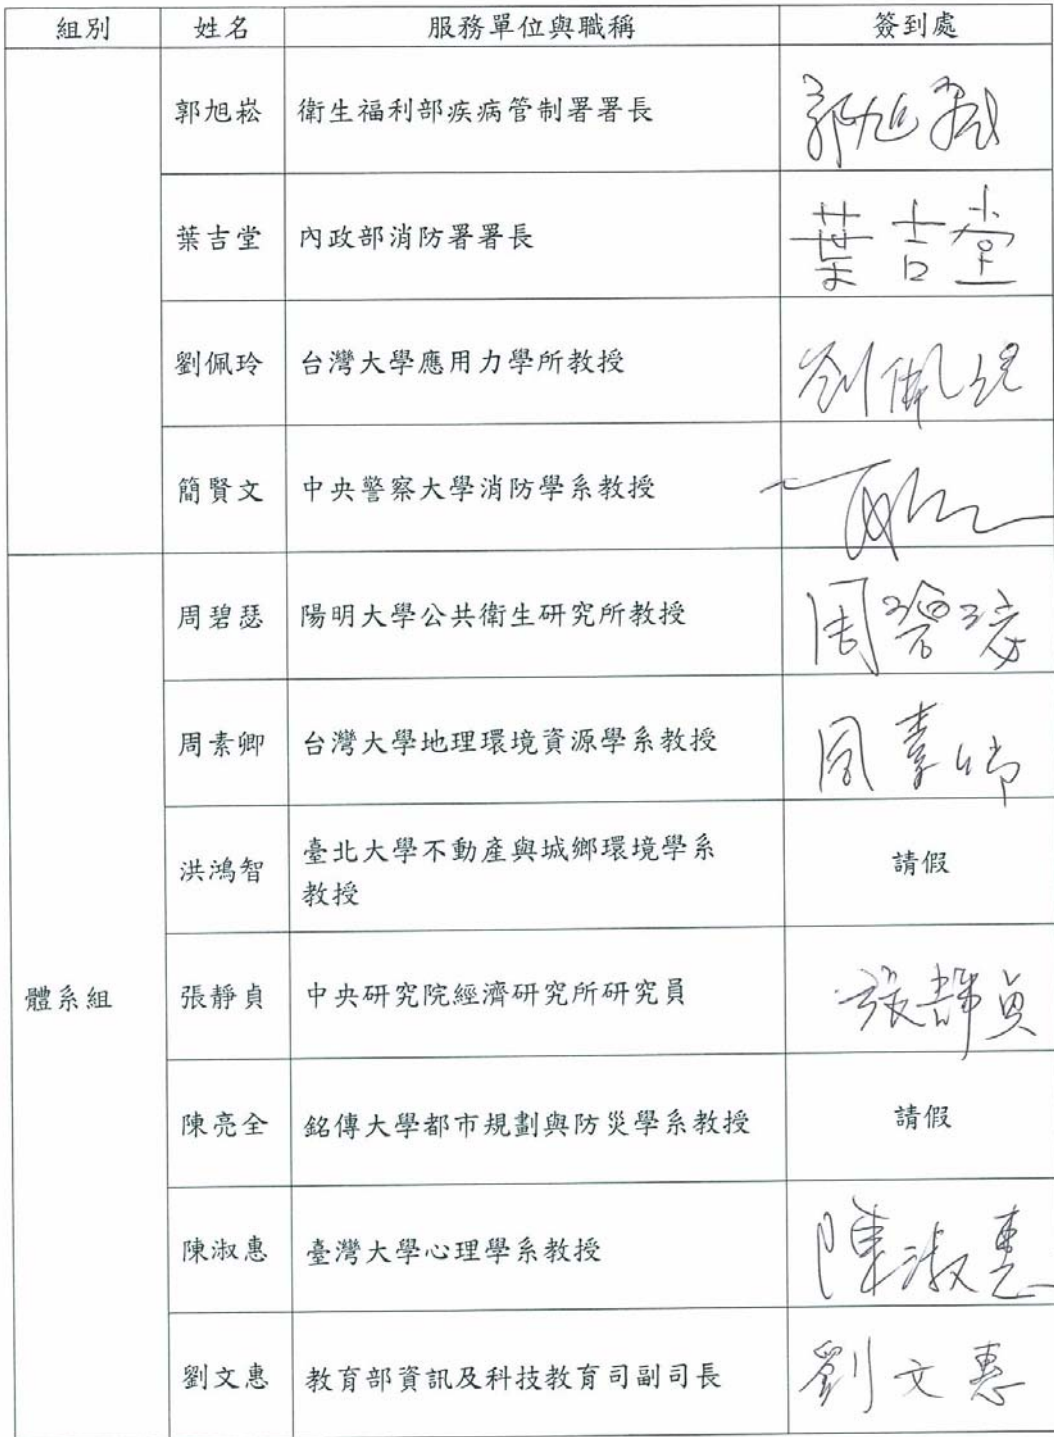 組別 姓名 服務單位與職稱 簽到處
郭旭崧 衛生福利部疾病管制署署長 郭旭崧
葉吉堂 內政部消防署署長 葉吉堂
劉佩玲 台灣大學應用力學所教授 劉佩玲
簡賢文 中央警察大學消防學系教授
周碧瑟 陽明大學公共衛生研究所教授 周碧瑟
周素卿 台灣大學地理環境資源學系教授 周素卿
洪鴻智 臺北大學不動產與城鄉環境學系 請假
教授
體系組 張靜貞 中央研究院經濟研究所研究員 張靜貞
陳亮全 銘傳大學都市規劃與防災學系教授 請假
陳淑惠 臺灣大學心理學系教授 陳淑惠
劉文惠 教育部資訊及科技教育司副司長 劉文惠